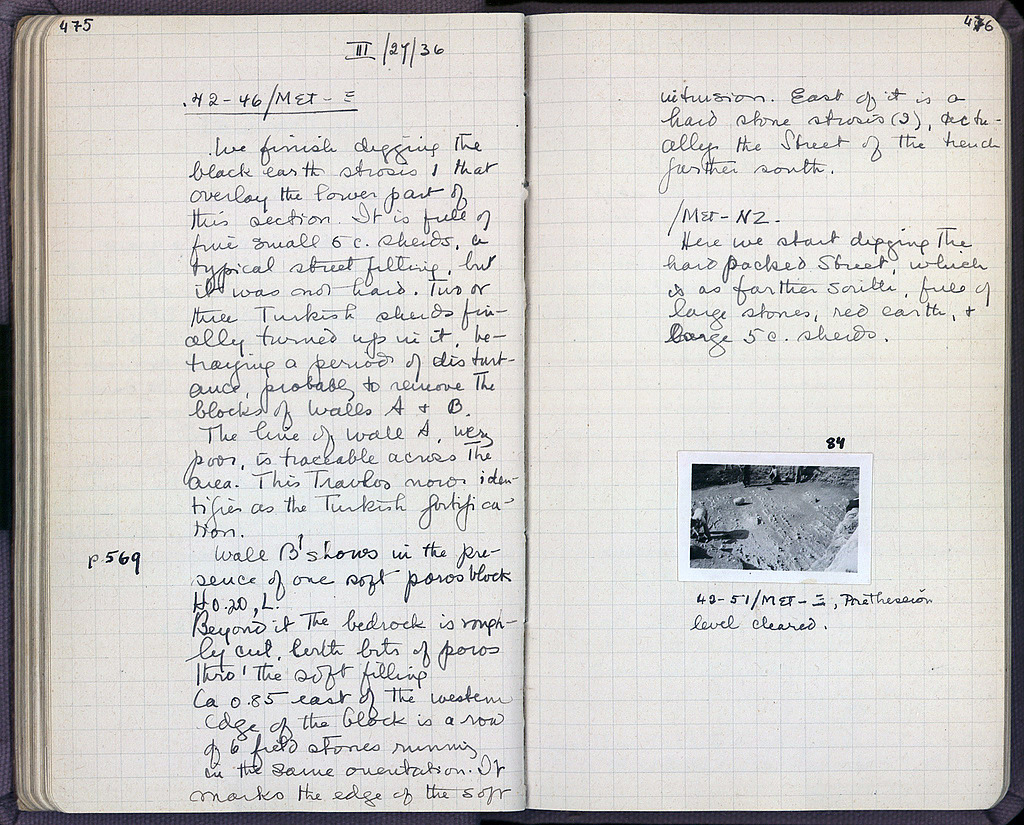 475
III/27/36
42-46/ΜΕΤ-Ξ
We finish digging the
black earth strosis 1 that
overlay the lower part of
this section. It is full of
fine small 5 c. sherds, a
typical street filling, but
it was not hard. Two or
three Turkish sherds fin-
ally turned up in it, be-
traying a period of distur-
ance, probably to remove the
blocks of walls A + B.
The line of wall A, very
poor, is traceable across the
area. This Travlos now iden-
tifies as the Turkish fortifica-
tion.
p. 569
Wall B' shows in the pre-
sence of one soft poros block
H 0.20, L.
Beyond it the bedrock is rough-
ly cut, with bits of poros
thro' the soft filling
Ca 0.85 east of the western
edge of the block is a row
of 6 field stones running
in the same orientation. It
marks the edge of the soft
476
intrusion. East of it is a
hard stone strosis (2), actu-
ally the Street of the trench
farther south.
/ΜΕΤ-ΝΖ.
Here we start digging the
hard packed Street, which
is as farther south, full of
large stones, red earth, +
large 5 c. sherds.
84
42-51/ΜΕΤ-Ξ,
level cleared.